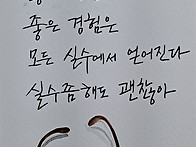 좋은 경험은
모든 실수에서 얻어진다
실수쯤해도 괜찮아